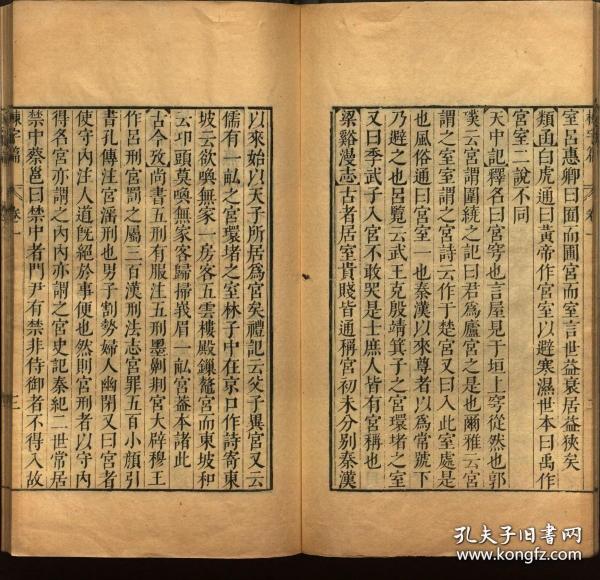 室呂惠卿曰囿而圃宮而室言世益衰居益狹矣
類函白虎通曰黃帝作宮室以避寒濕世本曰禹作
宮室二說不同
天中記釋名曰宮穹也言屋見于垣上穹從然也郭
璞云宮謂圍繞之記曰君爲廬宮之是也爾雅云宮
謂之室室謂之宮詩云作于楚宮又曰入此室處是
也風俗通曰宮室一也秦漢以來尊者以爲常號下
乃避之也呂覽云武王克殷靖箕子之宮環堵之室
又曰季武子入宮不敢哭是士庶人皆有宮稱也
梁谿漫志古者居室貴賤皆通稱宮初未分別秦漢
卷一
二
以來始以天子所居爲宮矣禮記云父子異宮又云
儒有一畝之宮環堵之室林子中在京口作詩寄東
坡云欲喚無家一房客五雲樓殿鏁鼇宮而東坡和
云叩頭莫喚無家客歸掃峩眉一畝宮益本諸此
古今攷尚書五刑有服注五刑墨劓剕宮大辟穆王
作呂刑宮罰之屬三百漢刑法志宮罪五百小顏引
書孔傳注宮淫刑也男子割勢婦人幽閉又曰宮者
使守內注人道旣絕於事便也然則宮刑者以守內
得名宮亦謂之內內亦謂之宮史記秦紀二世常居
禁中蔡邕曰禁中者門尹有禁非侍御者不得入故
字篇
卷一
三
孔夫子旧书网
www.kongfz.com